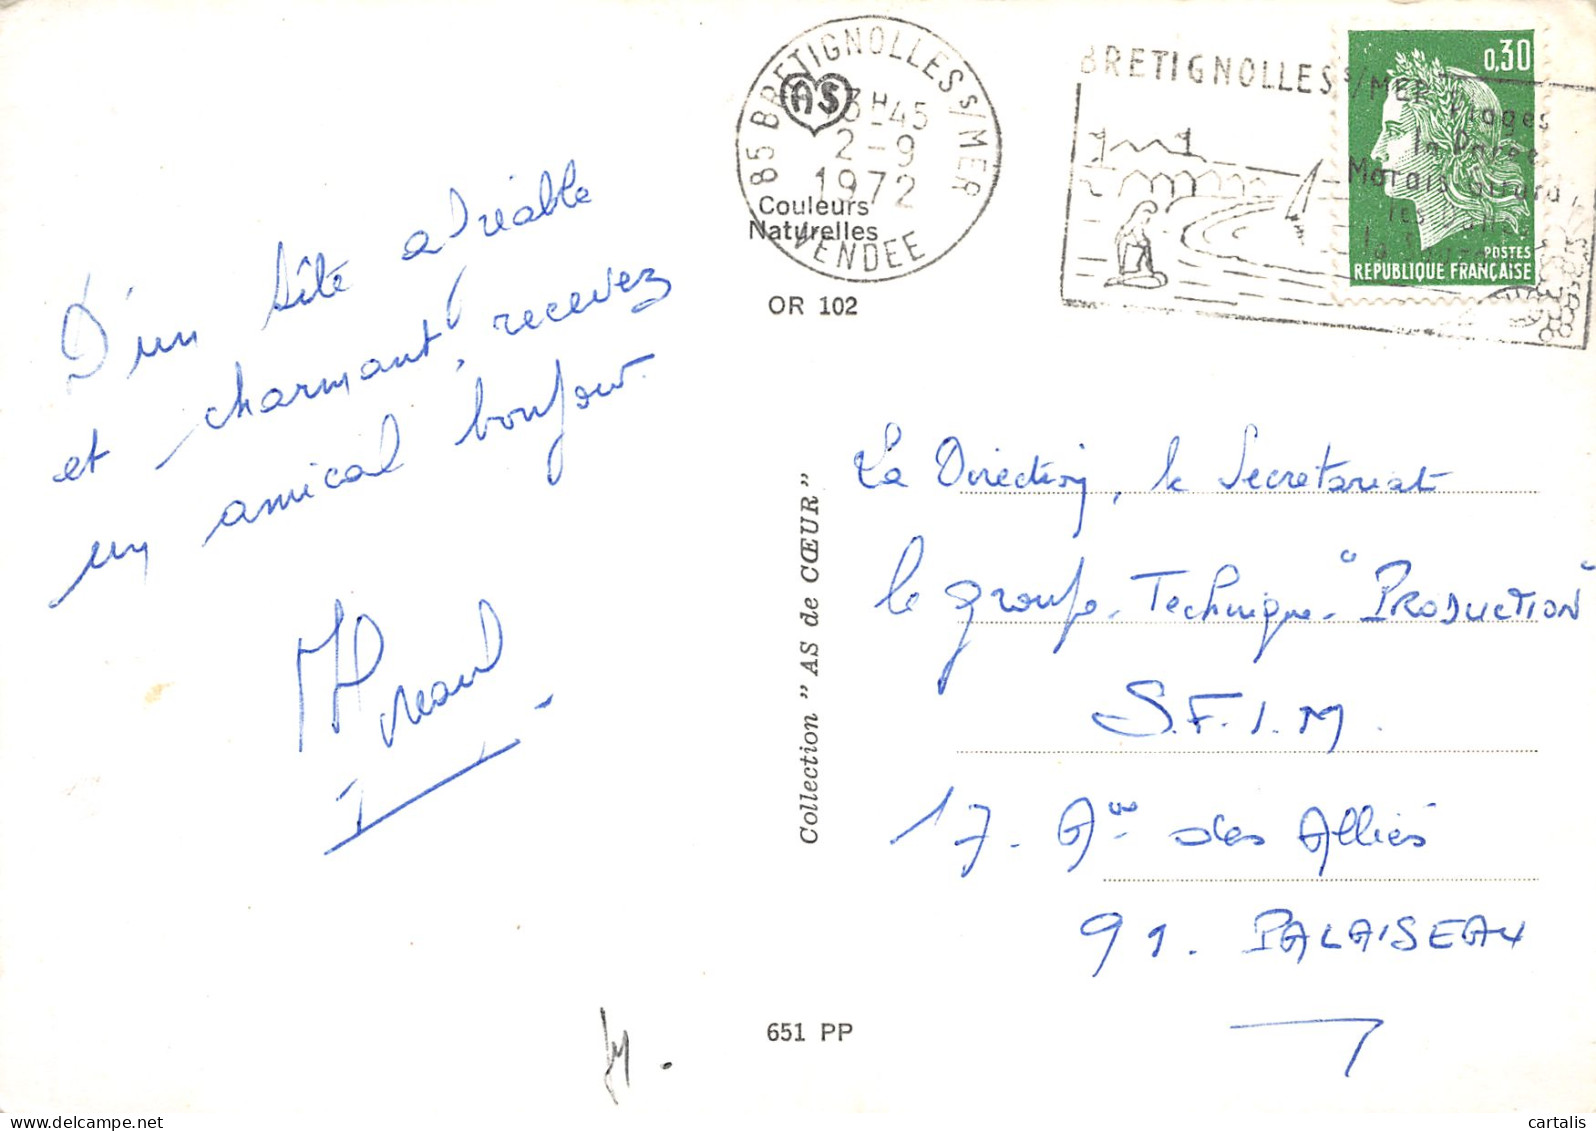 D'un site agréable
et charmant, recevez
un amical bonjour.
85 BRETIGNOLLES s/MER
AS
13H45
2-9
1972
VENDEE
Couleurs
Naturelles
OR 102
BRETIGNOLLES s/MER
Plages
la Parée
Marais Girard,
les Dunes
la Sauzaie
0,30
POSTES
REPUBLIQUE FRANÇAISE
Collection " AS de CŒUR "
La Direction, le Secretariat
le groupe Technique "PRODUCTION"
S.F.I.M.
17. Aue des Alliés
91. PALAISEAU
651 PP
cartalis